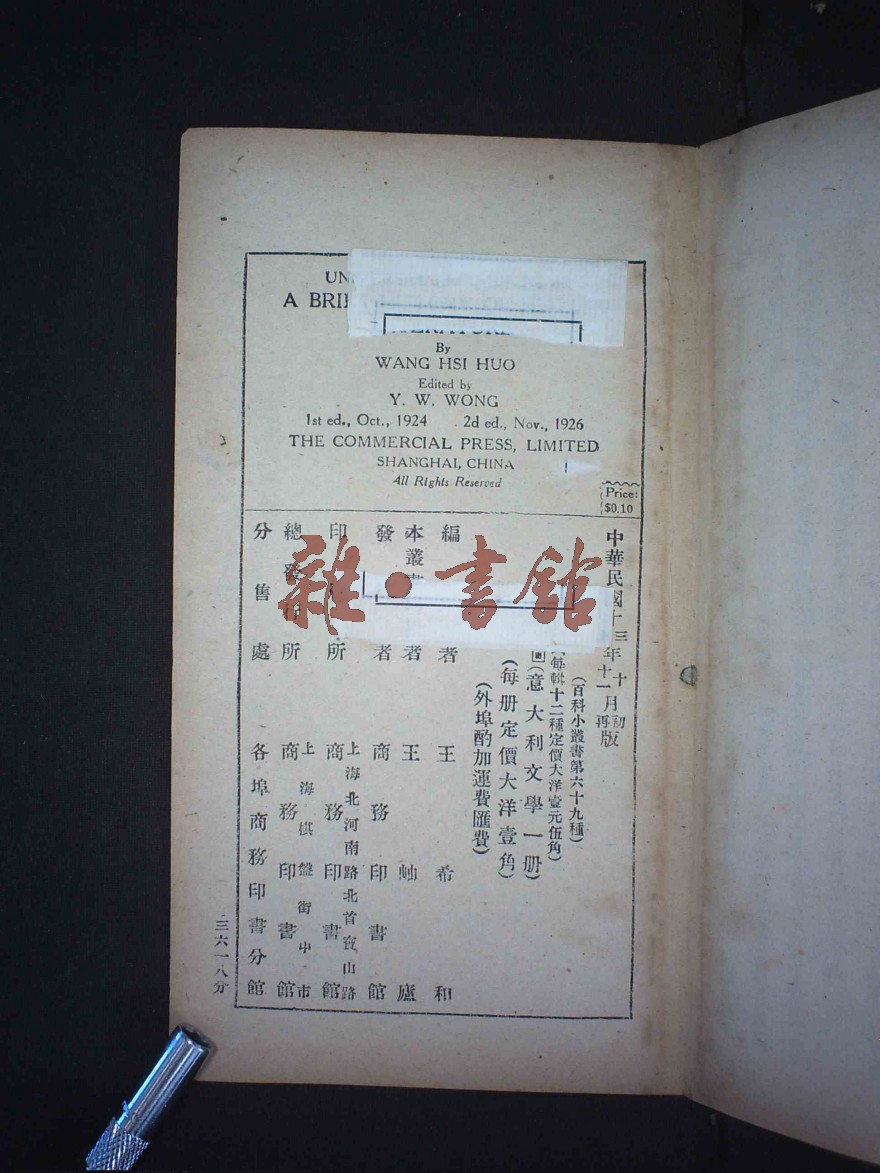 A
By
WANG HSI HUO
Edited by
Y. W. WONG
1st ed., Oct., 1924 2d ed., Nov., 1926
THE COMMERCIAL PRESS, LIMITED
SHANGHAI, CHINA
All Rights Reserved
Price:
$0.10
中華民國十三年十月初版
十一月再版
(百科小叢書第六十九種)
每輯十二種定價大洋壹元伍角)
(意大利文學一册)
(每册定價大洋壹角)
(外埠酌加運費匯費)
編者 王希和
本叢書者 王岫廬
發者 商務印書館
印所 上海北河南路北首寶山路 商務印書館
總發行所 上海棋盤街中市 商務印書館
分售處 各埠商務印書分館
三六一八分
雜·書館